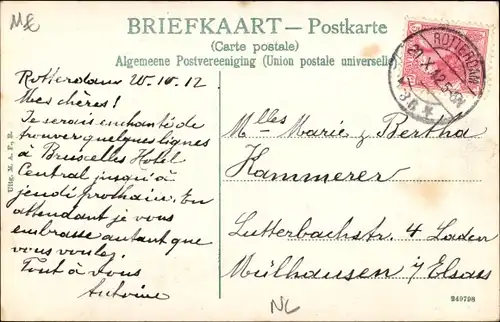 M€
BRIEFKAART — Postkarte
(Carte postale)
Algemeene Postvereeniging (Union postale universelle)
ROTTERDAM
20.X.12.5-6N
3 8 X
Rotterdam 20.10.12
Mes chères!
Je serais enchanté de
trouver quelques lignes
à Bruxelles Hotel
Central jusqu'à
jeudi prochain. En
attendant je vous
embrasse autant que
vous voulez.
Tout à vous
Antoine
Uitg. M. A. F., R.
Mlles Marie & Bertha
Kammerer
Lutterbachstr. 4 Laden
Mülhausen i/ Elsass
249798
NL